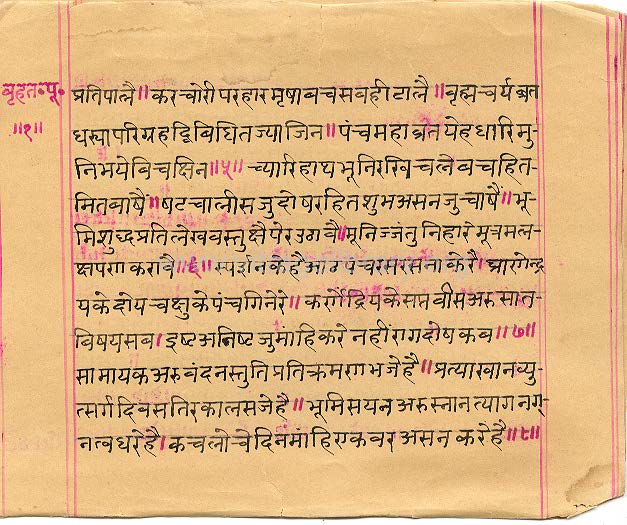 बृहत॰पू॰ प्रतिपालै॥ कर चोरी परहार मृषा बच सब ही टालै॥ बृह्मचर्य ब्रत
॥१॥ धस्यापरिग्रह द्विबिधि तज्याजिन॥ पंच महा ब्रत येह धारि मु-
निभये बिचक्षिन॥५॥ च्यारि हाथ भू निरखि चले बच हित-
मित भाषैं॥ षट चालीस जु दोष रहित शुभ असन जु चाषैं॥ भू-
मि शुद्ध प्रतिलेख वस्तु क्षेपेर उठावै॥ भू निर्जंतु निहार मूत्रमल-
क्षपण करावै॥६॥ स्पर्शन के है आठ पंच रस रसना केरे॥ घ्राणेन्द्र
य के दोय चक्षु के पंच गिनेरे॥ कर्णेंद्रिय के सप्त बीस अरु सात-
बिषय सब। इष्ट अनिष्ट जु मांहि करे नहीं राग दोष कब॥७॥
सामायक अरु वंदन स्तुति प्रतिक्रमण भजे है॥ प्रत्याखान व्यु-
त्सर्ग दिवस तिरकाल सजे है॥ भूमि सयन अरु स्नान त्याग नग्-
नत्व धरे है। कचलोचे दिन मांहि एक वर असन करे है॥८॥